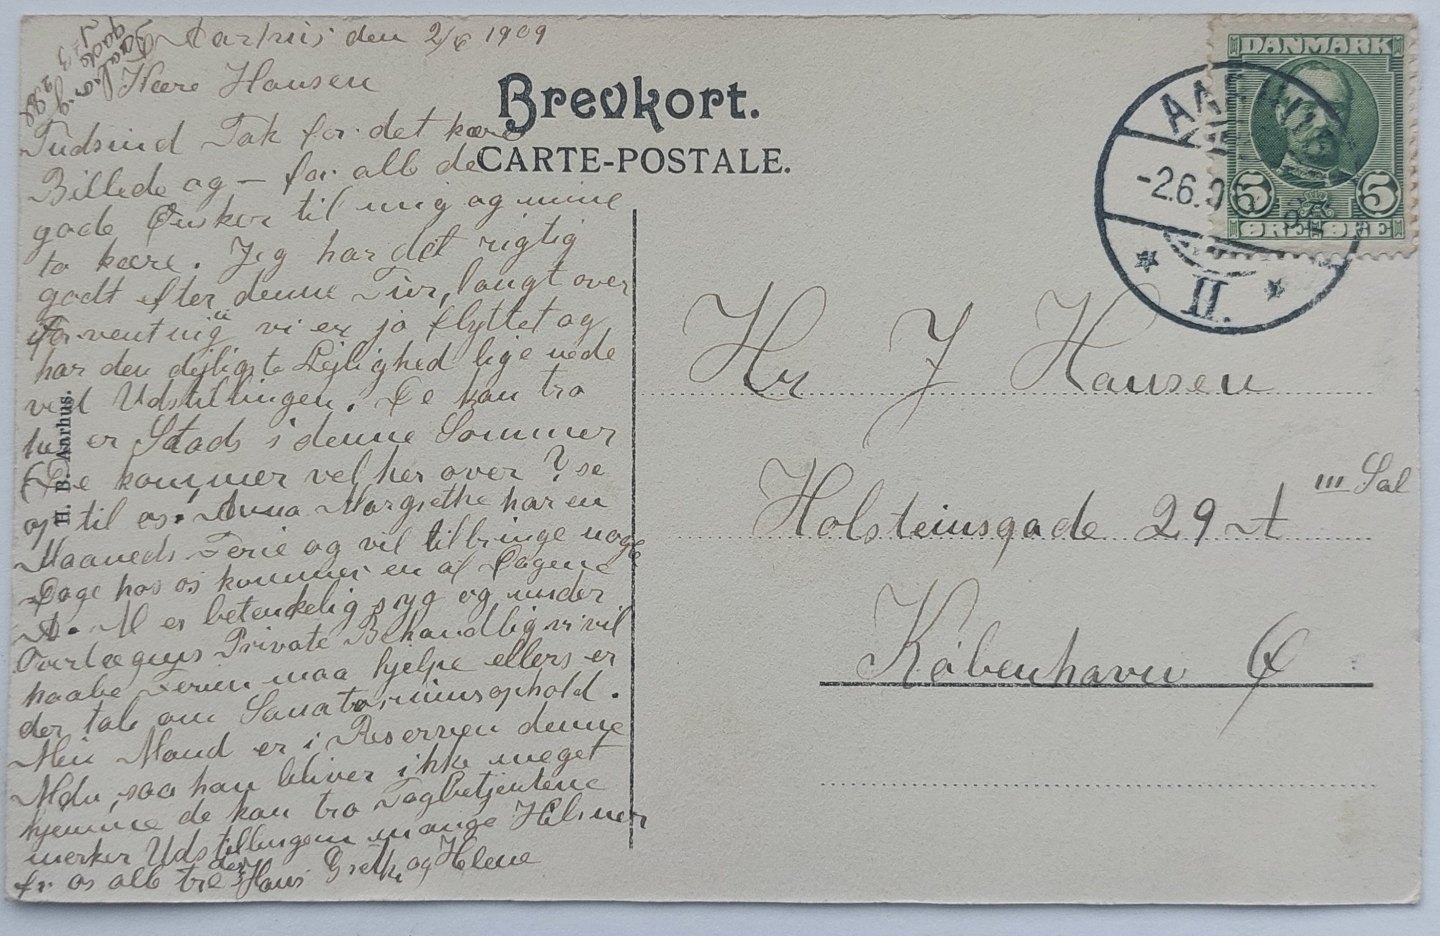 Aarhus den 2/6 1909
Kære Hansen
Tudsind Tak for det kære
Billede og – for alle de
gode Ønsker til mig og mine
to kære. Jeg har det rigtig
godt efter denne Tur, langt over
Forventning vi er jo flyttet og
har den dejligste Lejlighed lige nede
ved Udstillingen. De kan tro
her er Stads i denne Sommer
(De kommer vel her over? se
op til os. Anna Margrethe har en
Maaneds Ferie og vil tilbringe nogle
Dage hos os kommer en af Dagene
A. M er betenkelig syg og under
Overlægens Private Behandlig vi vil
haabe Ferien maa hjelpe ellers er
der tale om Sanatoriumsophold.
Min Mand er i Reserven denne
Mdn, saa han bliver ikke meget
hjemme de kan tro Togbetjentene
merker Udstillingen mange Hilsner
fr os alle tre Hans Grethe og Helene
Brevkort.
CARTE-POSTALE.
H. B. Aarhus.
DANMARK
5 5
ØRE ØRE
AARHUS
-2.6.0
II.
Hr J Hansen
Holsteinsgade 29 A III Sal
København Ø